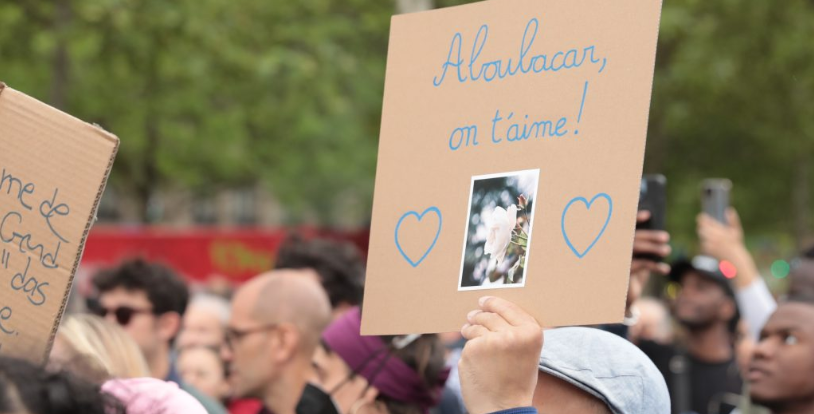 Aboubacar,
on t'aime!
me de
Grand
dos